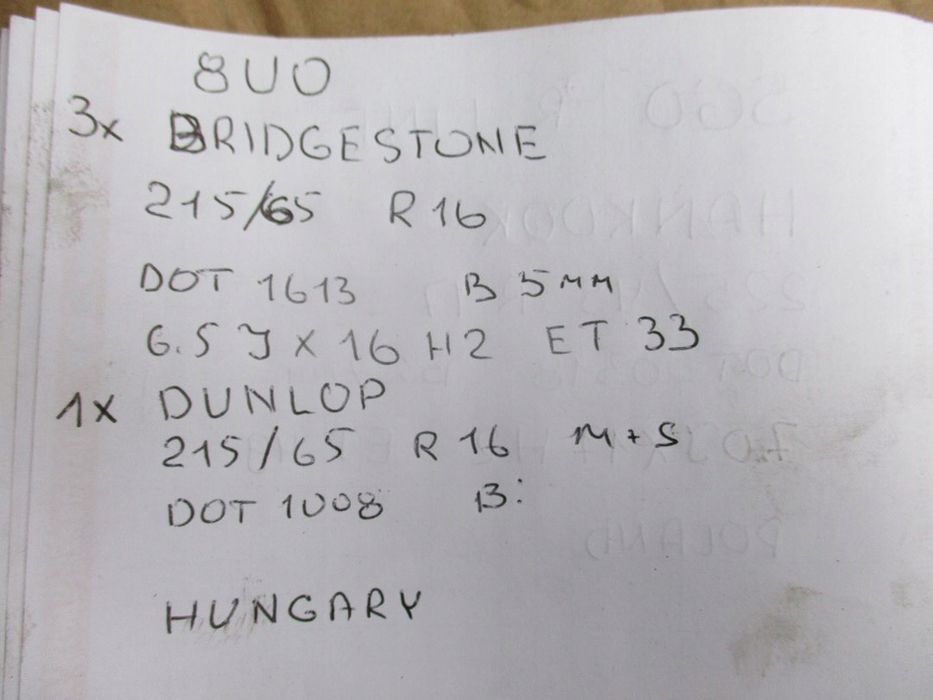 8U0
3x BRIDGESTONE
215/65 R 16
DOT 1613 B 5mm
6.5 J x 16 H2 ET 33
1x DUNLOP
215/65 R 16 M+S
DOT 1008 B:
HUNGARY